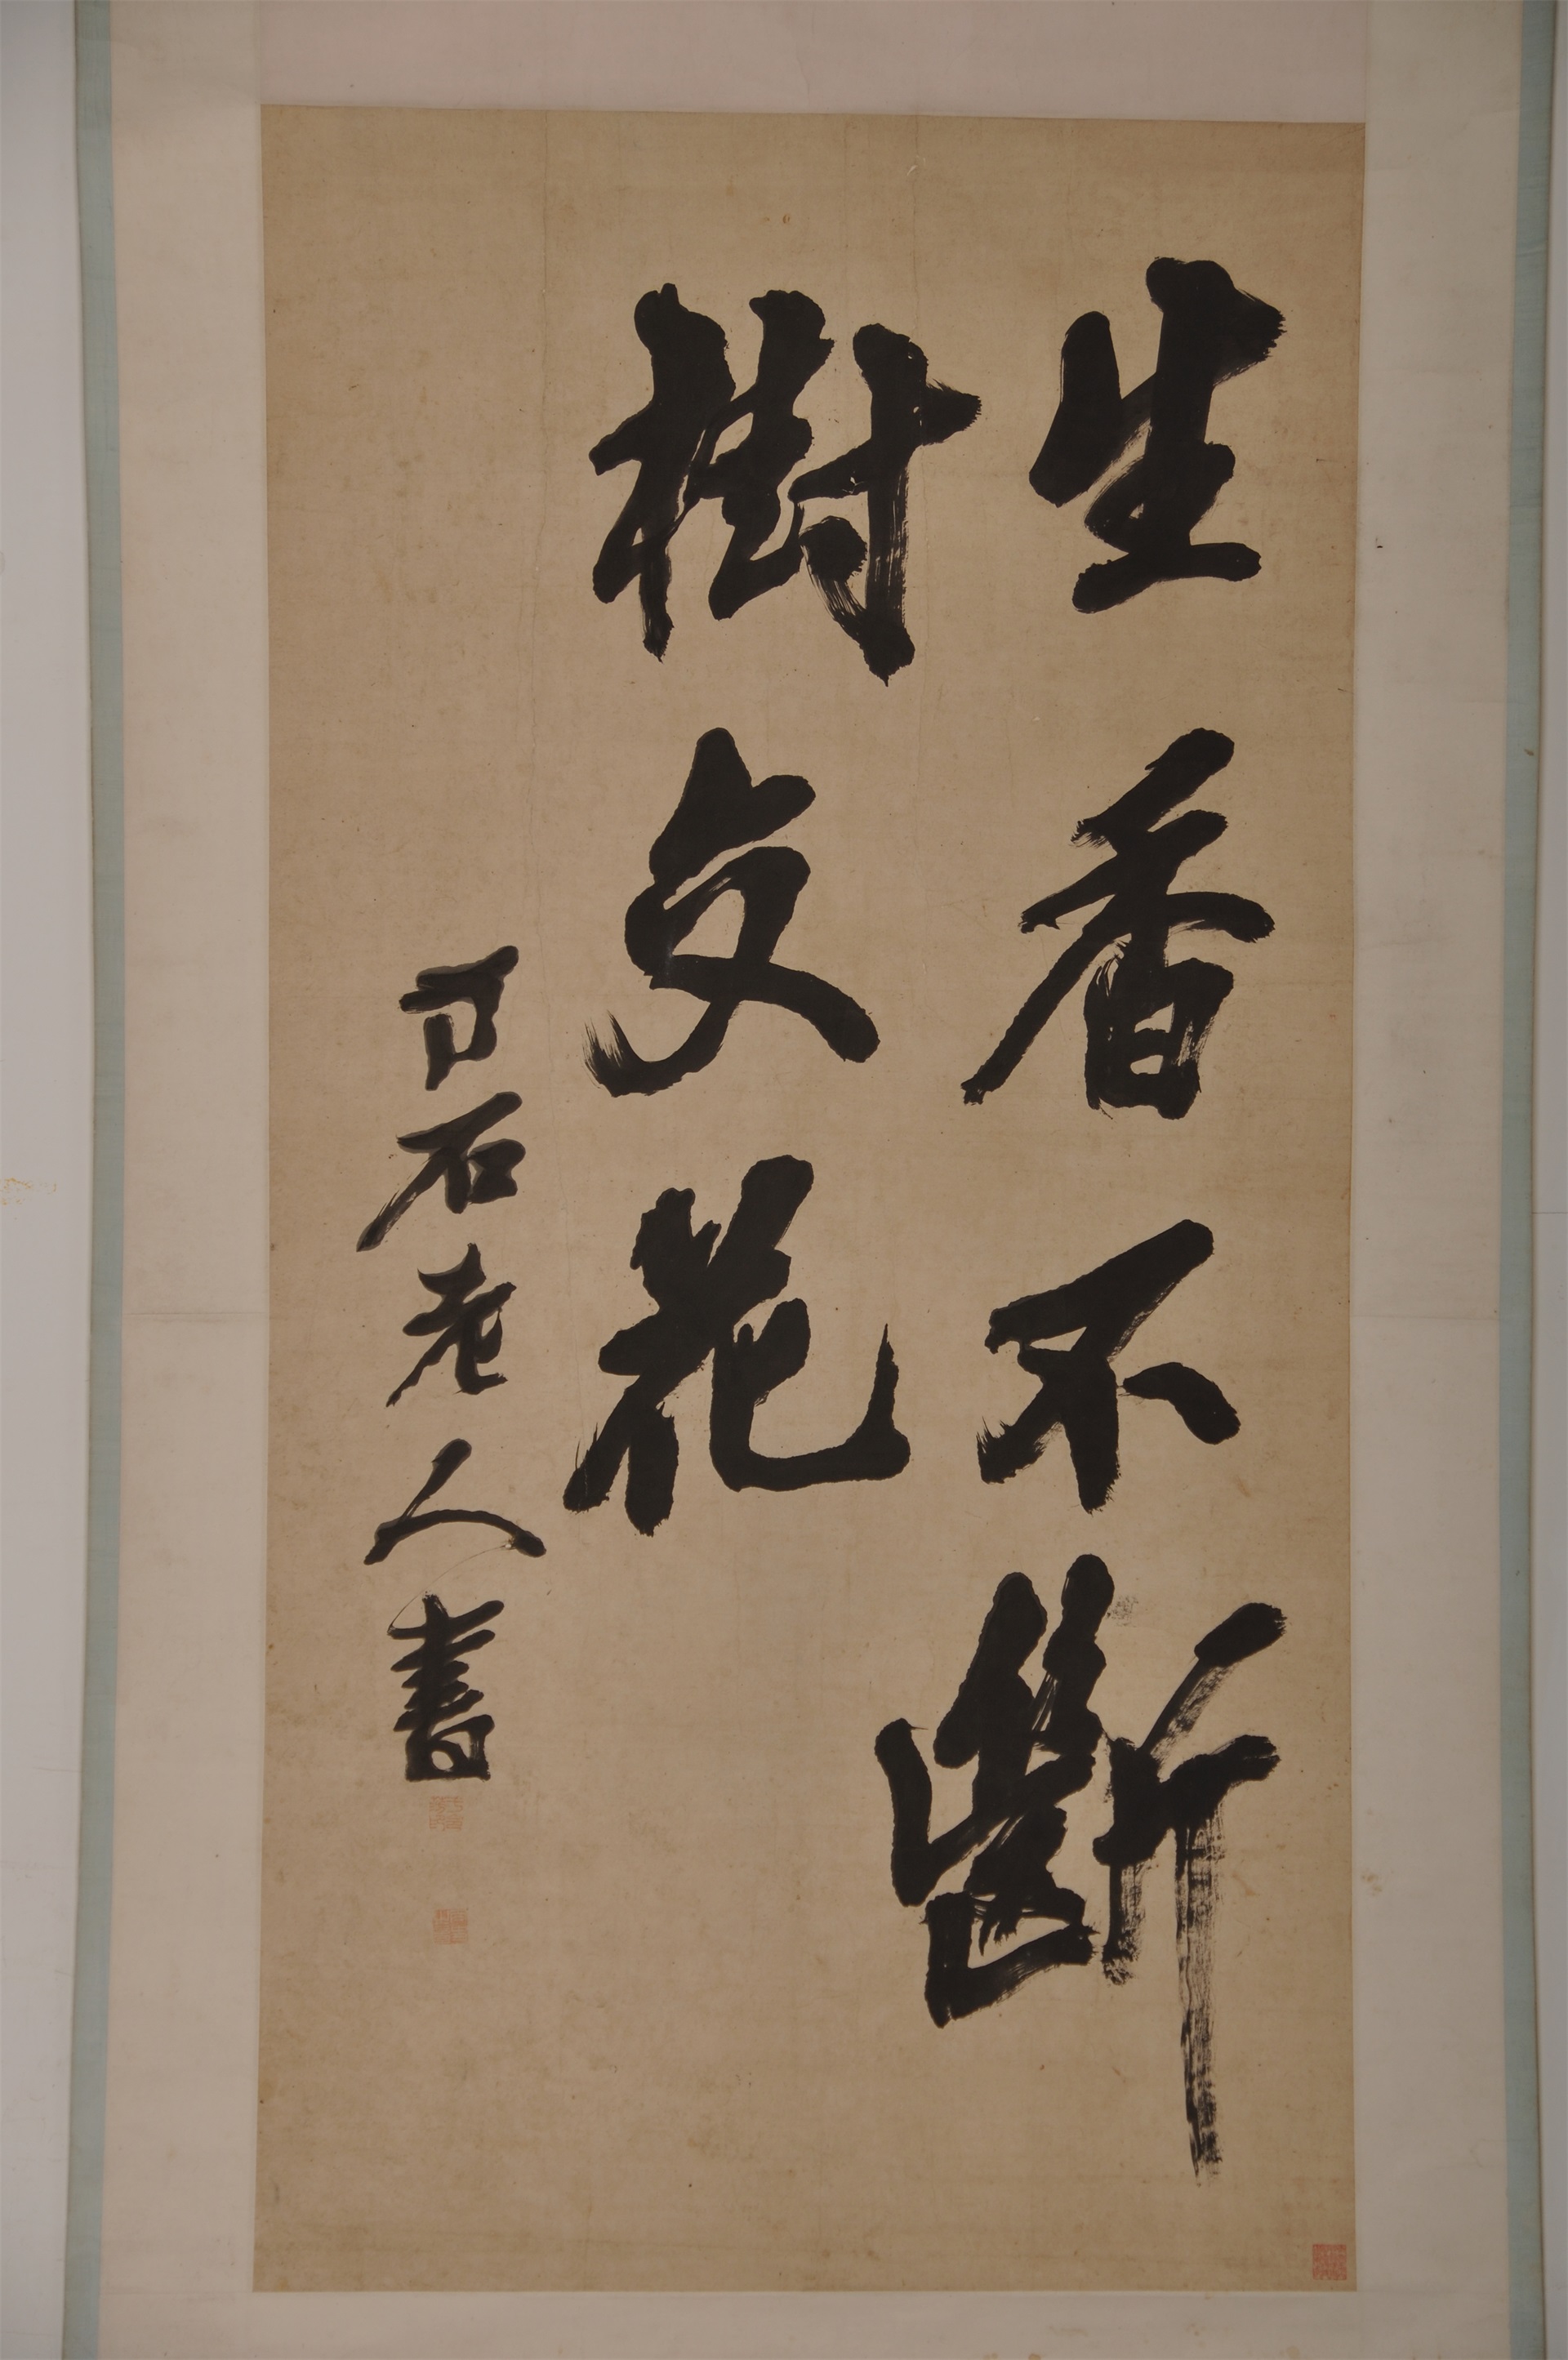 生香不斷
樹交花
石老人書